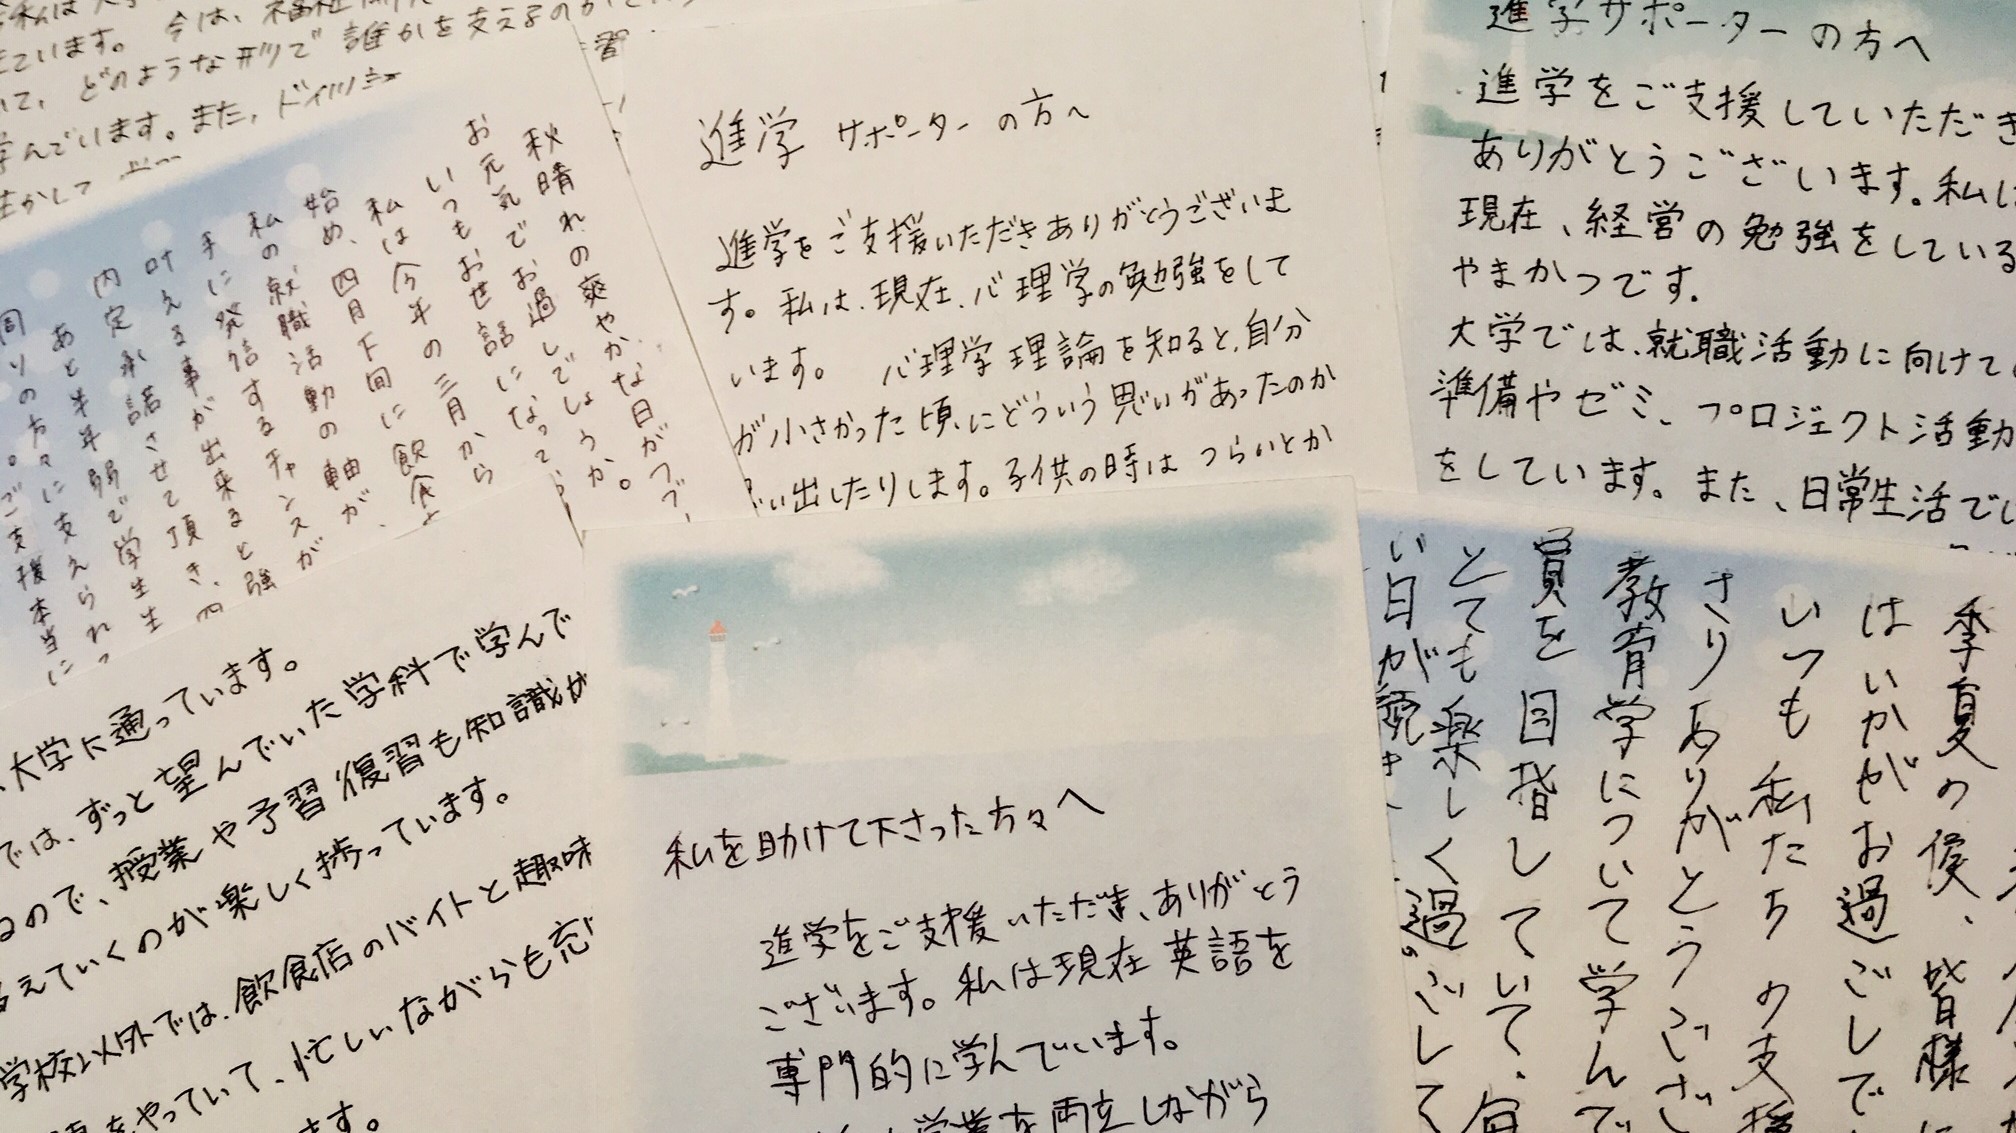 ています。今は、福祉
いて、どのような形で誰かを支えるのか
学んでいます。また、ドイツ
生かして
秋晴れの爽やかな日がつづ
お元気でお過しでしょうか。
いつもお世話になって
私は今年の三月から
始め、四月下旬に飲食
私の就職活動の軸が、
手に発信するチャンスが
叶える事が出来ると強
内定承諾させて頂き、四
あと半年弱で学生生
周りの方々に支えられ
ご支援本当に
進学サポーターの方へ
進学をご支援いただきありがとうございま
す。私は、現在、心理学の勉強をして
います。心理学理論を知ると、自分
が小さかった頃にどういう思いがあったのか
い出したりします。子供の時はつらいとか
進学サポーターの方へ
進学をご支援していただき
ありがとうございます。私は
現在、経営の勉強をしている
やまかつです。
大学では、就職活動に向けて
準備やゼミ、プロジェクト活動
をしています。また、日常生活でし
大学に通っています。
では、ずっと望んでいた学科で学んで
るので、授業や予習復習も知識が
えていくのが楽しく捗っています。
学校以外では、飲食店のバイトと趣味
をやっていて、忙しいながらも充
ます。
私を助けて下さった方々へ
進学をご支援いただき、ありがとう
ございます。私は現在英語を
専門的に学んでいます。
学業を両立しながら
季夏の候、皆様に
はいかがお過ごしで
いつも私たちの支援
さりありがとうござ
教育学について学んで
員を目指していて、毎
とても楽しく過ごして
い日が続き